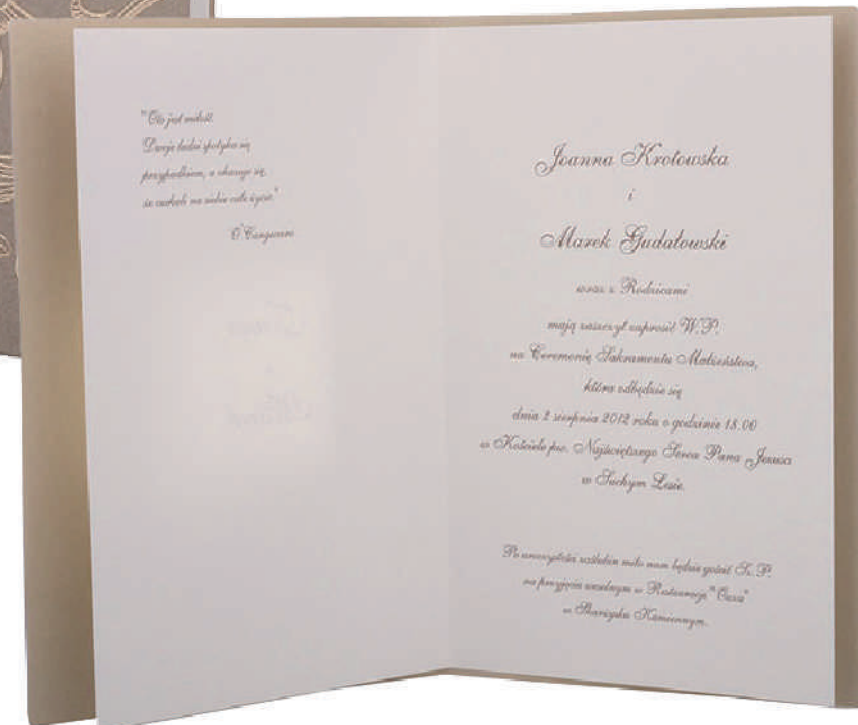 "Oto jest miłość.
Dwoje ludzi spotyka się
przypadkiem, a okazuje się,
że czekali na siebie całe życie."
Joanna Krotowska
i
Marek Gudatowski
wraz z Rodzicami
mają zaszczyt zaprosić W.P.
na Ceremonię Sakramentu Małżeństwa,
która odbędzie się
dnia 2 sierpnia 2012 roku o godzinie 18.00
w Kościele pw. Najświętszego Serca Pana Jezusa
w Suchym Lesie.
Po uroczystości zaślubin miło nam będzie gościć Sz.P.
na przyjęciu weselnym w Restauracji
w Skarżysku Kamiennym.